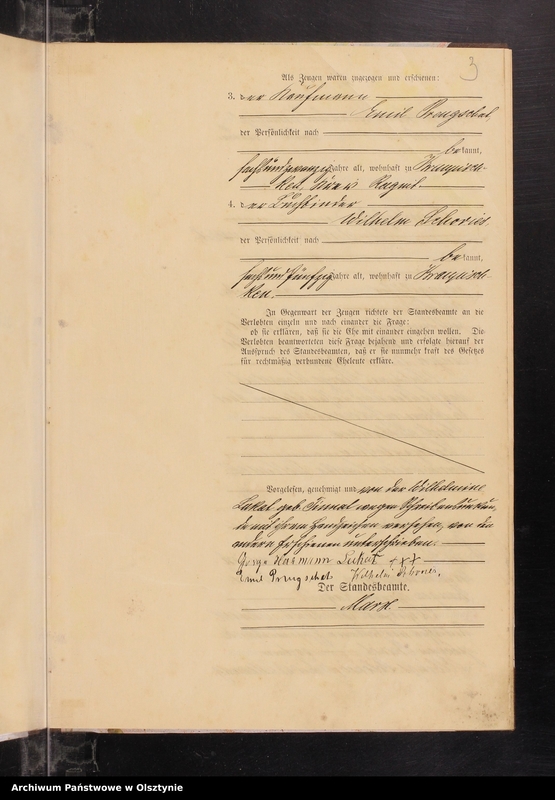 3
Als Zeugen waren zugezogen und erschienen:
3. der Kaufmann
Emil Prengschat
der Persönlichkeit nach
bekannt,
sechsundzwanzig Jahre alt, wohnhaft zu
4. der Buchbinder
Wilhelm Schories
der Persönlichkeit nach
bekannt,
sechsundfünfzig Jahre alt, wohnhaft zu
ken.
In Gegenwart der Zeugen richtete der Standesbeamte an die
Verlobten einzeln und nach einander die Frage:
ob sie erklären, daß sie die Ehe mit einander eingehen wollen. Die
Verlobten beantworteten diese Frage bejahend und erfolgte hierauf der
Ausspruch des Standesbeamten, daß er sie nunmehr kraft des Gesetzes
für rechtmäßig verbundene Eheleute erkläre.
Vorgelesen, genehmigt und von der Wilhelmine
geb. wegen
mit ihrem Handzeichen versehen, von den
andern Erschienenen unterschrieben.
+++
Emil Wilhelm Schories.
Der Standesbeamte.
Marx.
Archiwum Państwowe w Olsztynie